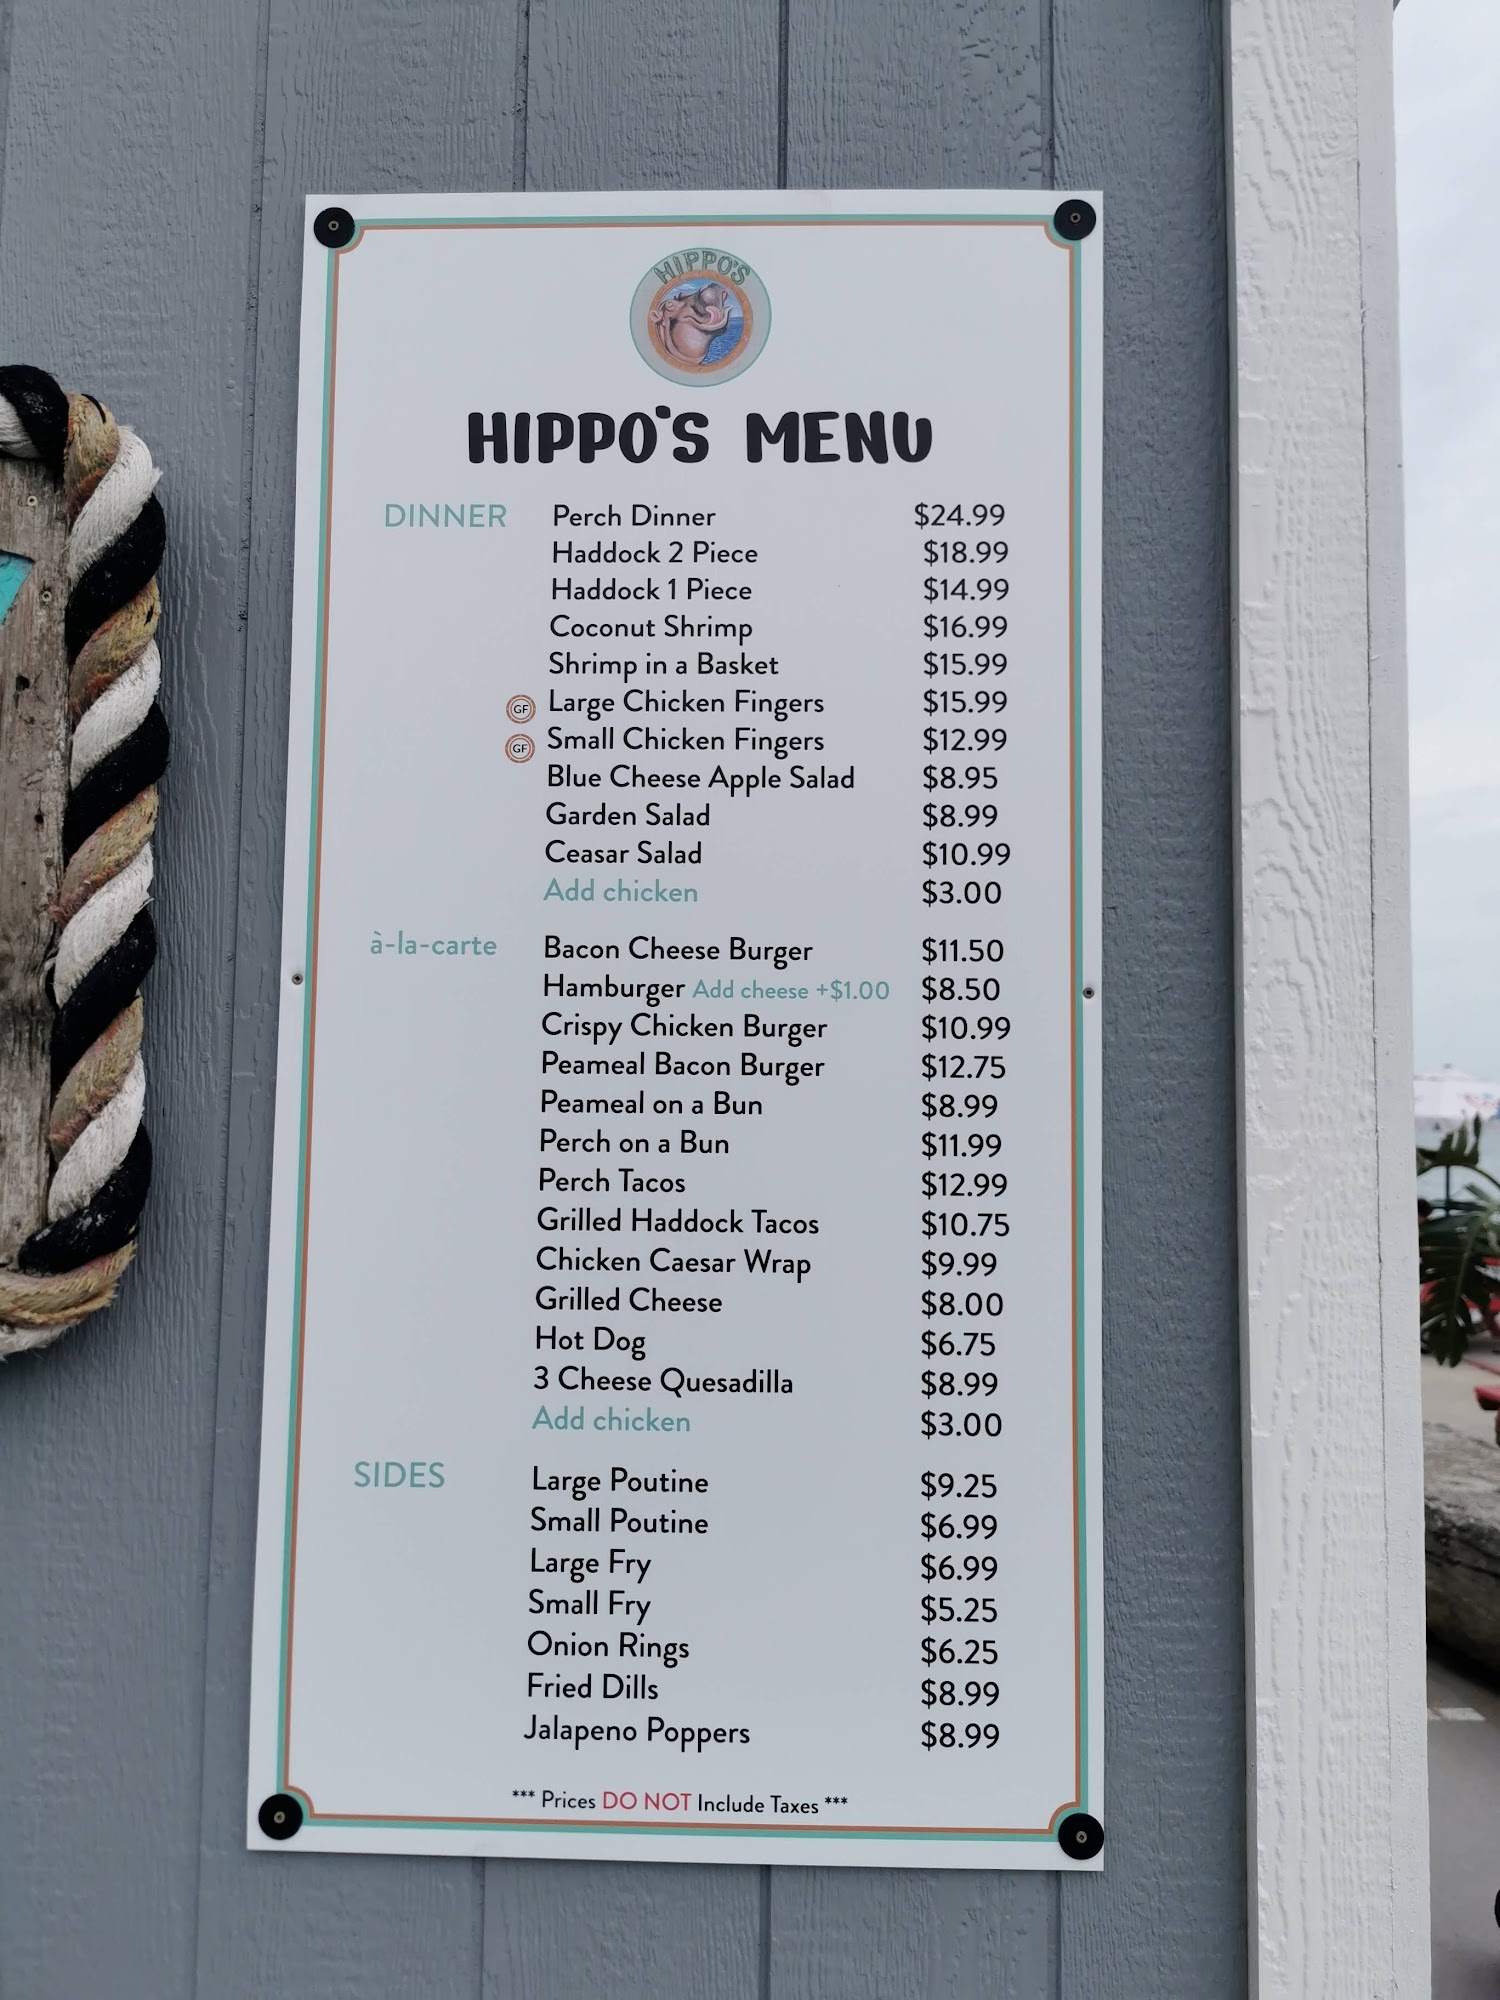 HIPPO'S
HIPPO'S MENU
DINNER Perch Dinner $24.99
Haddock 2 Piece $18.99
Haddock 1 Piece $14.99
Coconut Shrimp $16.99
Shrimp in a Basket $15.99
GF Large Chicken Fingers $15.99
GF Small Chicken Fingers $12.99
Blue Cheese Apple Salad $8.95
Garden Salad $8.99
Ceasar Salad $10.99
Add chicken $3.00
à-la-carte Bacon Cheese Burger $11.50
Hamburger Add cheese +$1.00 $8.50
Crispy Chicken Burger $10.99
Peameal Bacon Burger $12.75
Peameal on a Bun $8.99
Perch on a Bun $11.99
Perch Tacos $12.99
Grilled Haddock Tacos $10.75
Chicken Caesar Wrap $9.99
Grilled Cheese $8.00
Hot Dog $6.75
3 Cheese Quesadilla $8.99
Add chicken $3.00
SIDES Large Poutine $9.25
Small Poutine $6.99
Large Fry $6.99
Small Fry $5.25
Onion Rings $6.25
Fried Dills $8.99
Jalapeno Poppers $8.99
*** Prices DO NOT Include Taxes ***